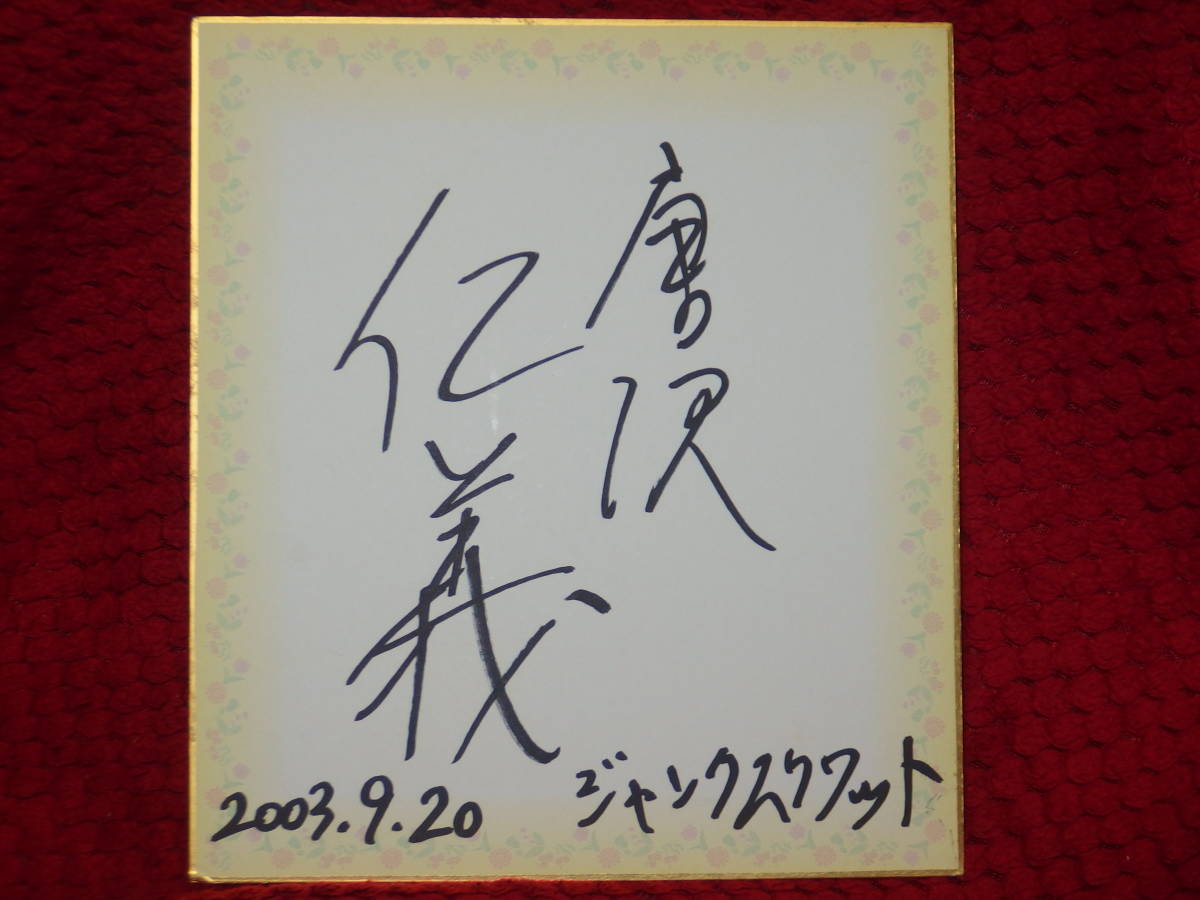 唐沢
仁義
2003.9.20 ジャンクスクワット